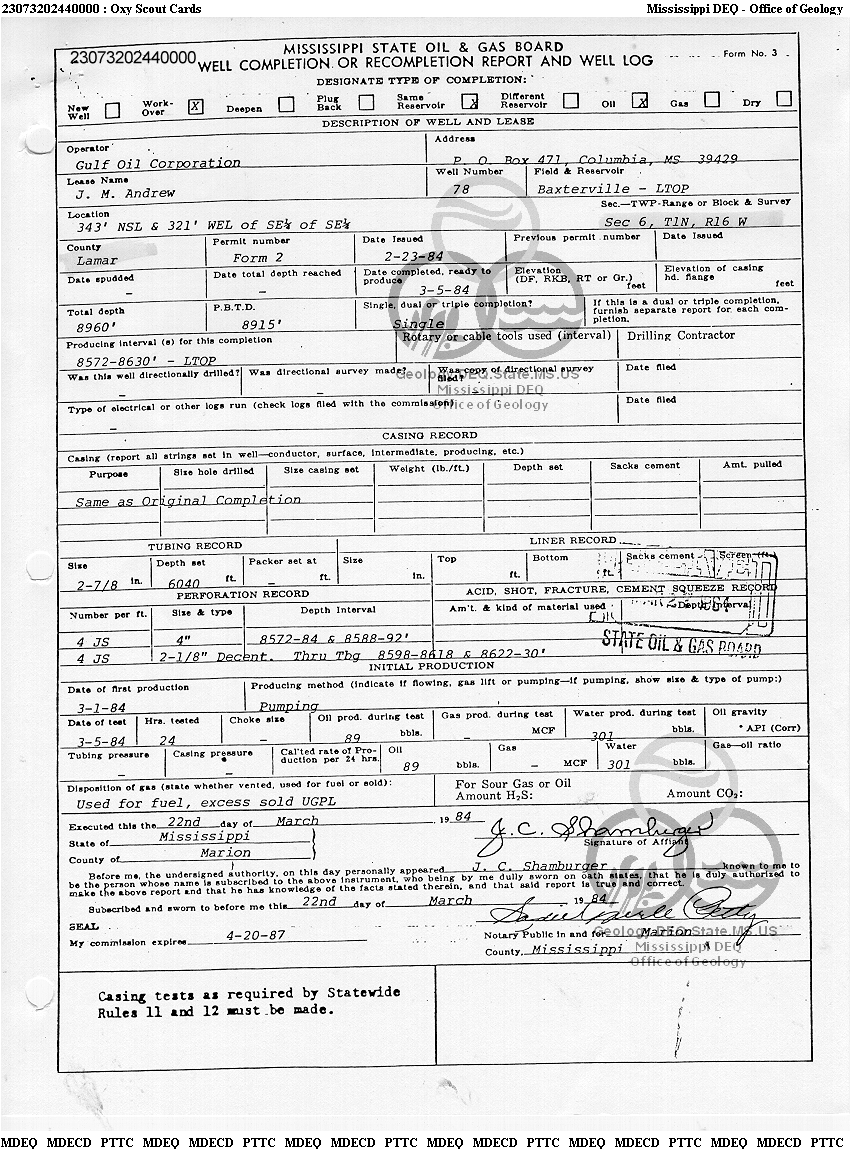 23073202440000 : Oxy Scout Cards Mississippi DEQ - Office of Geology
23073202440000
MISSISSIPPI STATE OIL & GAS BOARD
WELL COMPLETION OR RECOMPLETION REPORT AND WELL LOG
Form No. 3
DESIGNATE TYPE OF COMPLETION:
New Well Work-Over X Deepen Plug Back Same Reservoir X Different Reservoir Oil X Gas Dry
DESCRIPTION OF WELL AND LEASE
Operator Address
Gulf Oil Corporation P. O. Box 471, Columbia, MS 39429
Lease Name Well Number Field & Reservoir
J. M. Andrew 78 Baxterville - LTOP
Location Sec.—TWP-Range or Block & Survey
343' NSL & 321' WEL of SE¼ of SE¼ Sec 6, T1N, R16 W
County Permit number Date Issued Previous permit number Date Issued
Lamar Form 2 2-23-84
Date spudded Date total depth reached Date completed, ready to produce Elevation (DF, RKB, RT or Gr.) feet Elevation of casing hd. flange feet
- - 3-5-84
Total depth P.B.T.D. Single, dual or triple completion? If this is a dual or triple completion, furnish separate report for each completion.
8960' 8915' Single
Producing interval (s) for this completion Rotary or cable tools used (interval) Drilling Contractor
8572-8630' - LTOP
Was this well directionally drilled? Was directional survey made? Was copy of directional survey filed? Date filed
- - -
Geology.DEQ.State.MS.US
Mississippi DEQ
Office of Geology
Type of electrical or other logs run (check logs filed with the commission) Date filed
-
CASING RECORD
Casing (report all strings set in well—conductor, surface, intermediate, producing, etc.)
Purpose Size hole drilled Size casing set Weight (lb./ft.) Depth set Sacks cement Amt. pulled
Same as Original Completion
TUBING RECORD LINER RECORD
Size Depth set Packer set at Size Top Bottom Sacks cement Screen (ft.)
2-7/8 in. 6040 ft. - ft. in. ft. ft.
PERFORATION RECORD ACID, SHOT, FRACTURE, CEMENT SQUEEZE RECORD
Number per ft. Size & type Depth Interval Am't. & kind of material used Depth Interval
4 JS 4" 8572-84 & 8588-92'
STATE OIL & GAS BOARD
4 JS 2-1/8" Decent. Thru Tbg 8598-8618 & 8622-30'
INITIAL PRODUCTION
Date of first production Producing method (indicate if flowing, gas lift or pumping—if pumping, show size & type of pump:)
3-1-84 Pumping
Date of test Hrs. tested Choke size Oil prod. during test Gas prod. during test Water prod. during test Oil gravity
3-5-84 24 - 89 bbls. - MCF 301 bbls. ° API (Corr)
Tubing pressure Casing pressure Cal'ted rate of Production per 24 hrs. Oil Gas Water Gas—oil ratio
- - 89 bbls. - MCF 301 bbls.
Disposition of gas (state whether vented, used for fuel or sold): For Sour Gas or Oil
Amount H₂S: Amount CO₂:
Used for fuel, excess sold UGPL
Executed this the 22nd day of March 19 84
J. C. Shamburger
State of Mississippi Signature of Affiant
County of Marion
Before me, the undersigned authority, on this day personally appeared J. C. Shamburger known to me to
be the person whose name is subscribed to the above instrument, who being by me dully sworn on oath states, that he is duly authorized to
make the above report and that he has knowledge of the facts stated therein, and that said report is true and correct.
Subscribed and sworn to before me this 22nd day of March 19 84
SEAL
My commission expires 4-20-87 Notary Public in and for Marion
County, Mississippi
Geology.DEQ.State.MS.US
Mississippi DEQ
Office of Geology
Casing tests as required by Statewide
Rules 11 and 12 must be made.
MDEQ MDECD PTTC MDEQ MDECD PTTC MDEQ MDECD PTTC MDEQ MDECD PTTC MDEQ MDECD PTTC MDEQ MDECD PTTC